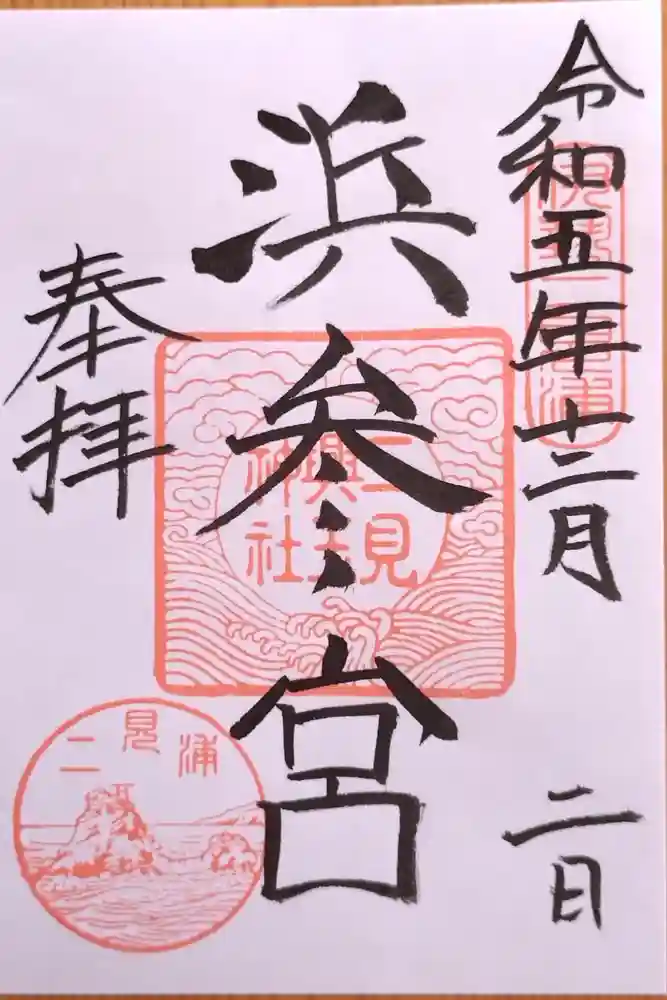 令和五年十二月 二日
伊勢二見浦
浜参宮
二見
興玉
神社
奉拝
二見浦